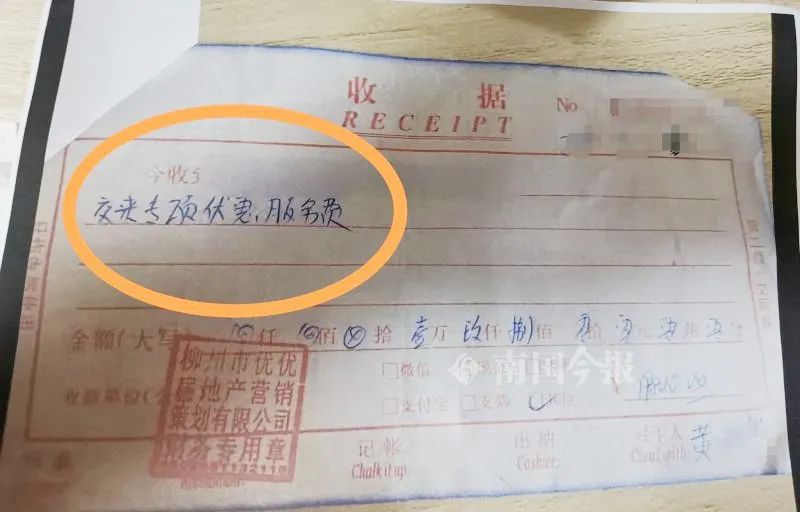 收 据
No
RECEIPT
今收到
交来专项优惠、服务费
金额(大写) ⊗仟 ⊗佰 ⊗拾 壹万 玖仟 捌佰 零拾 零元 零角 零分
南国今报
柳州市优优
房地产营销
策划有限公司
财务专用章
收款单位(公
□微信
□支付宝 □支票
¥ 19800.00
记 帐
Chalk it up.
出 纳
Cashee.
经手人 黄
Cleal with: